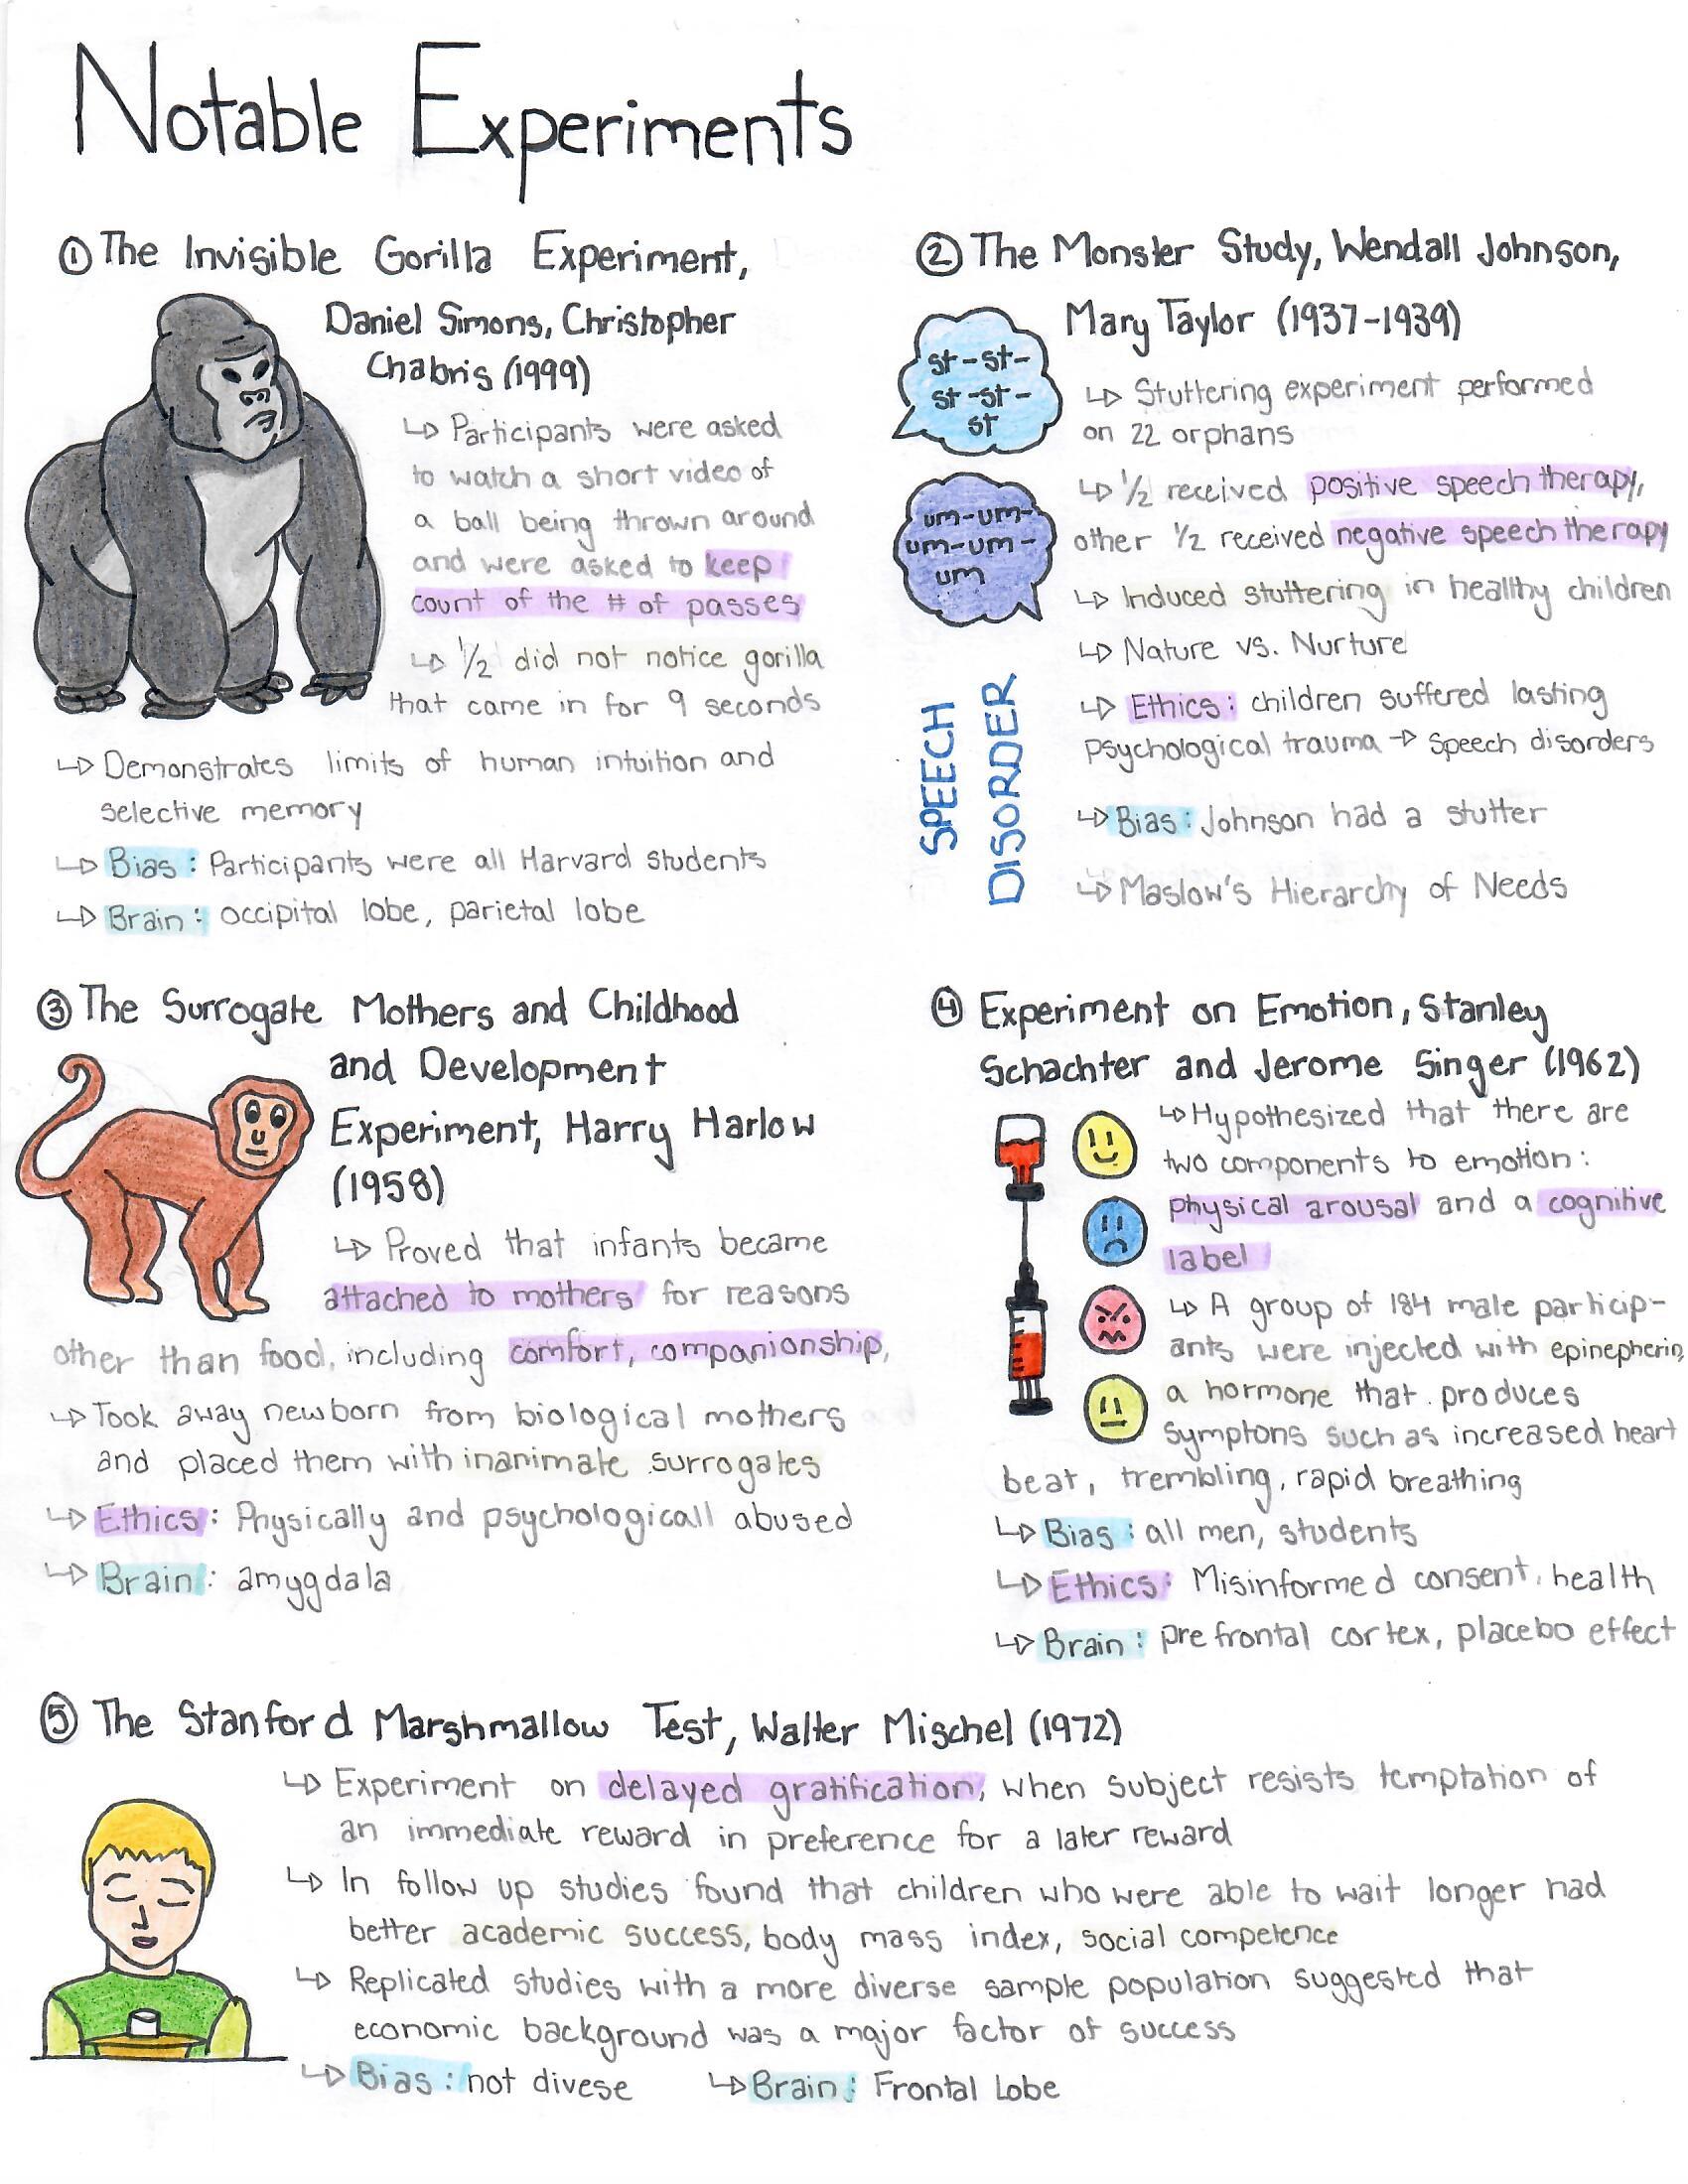 Notable Experiments
① The Invisible Gorilla Experiment,
Daniel Simons, Christopher
Chabris (1999)
↳ Participants were asked
to watch a short video of
a ball being thrown around
and were asked to keep
count of the # of passes
↳ 1/2 did not notice gorilla
that came in for 9 seconds
↳ Demonstrates limits of human intuition and
selective memory
↳ Bias: Participants were all Harvard students
↳ Brain: occipital lobe, parietal lobe
② The Monster Study, Wendall Johnson,
Mary Taylor (1937-1939)
st-st-
st-st-
st
um-um-
um-um-
um
SPEECH
DISORDER
↳ Stuttering experiment performed
on 22 orphans
↳ 1/2 received positive speech therapy,
other 1/2 received negative speech therapy
↳ Induced stuttering in healthy children
↳ Nature vs. Nurture
↳ Ethics: children suffered lasting
psychological trauma → speech disorders
↳ Bias: Johnson had a stutter
↳ Maslow's Hierarchy of Needs
③ The Surrogate Mothers and Childhood
and Development
Experiment, Harry Harlow
(1958)
↳ Proved that infants became
attached to mothers for reasons
other than food, including comfort, companionship,
↳ Took away newborn from biological mothers
and placed them with inanimate surrogates
↳ Ethics: Physically and psychologicall abused
↳ Brain: amygdala
④ Experiment on Emotion, Stanley
Schachter and Jerome Singer (1962)
↳ Hypothesized that there are
two components to emotion:
physical arousal and a cognitive
label
↳ A group of 184 male particip-
ants were injected with epinepherin,
a hormone that produces
symptons such as increased heart
beat, trembling, rapid breathing
↳ Bias: all men, students
↳ Ethics: Misinformed consent, health
↳ Brain: prefrontal cortex, placebo effect
⑤ The Stanford Marshmallow Test, Walter Mischel (1972)
↳ Experiment on delayed gratification, when subject resists temptation of
an immediate reward in preference for a later reward
↳ In follow up studies found that children who were able to wait longer had
better academic success, body mass index, social competence
↳ Replicated studies with a more diverse sample population suggested that
economic background was a major factor of success
↳ Bias: not divese ↳ Brain: Frontal Lobe